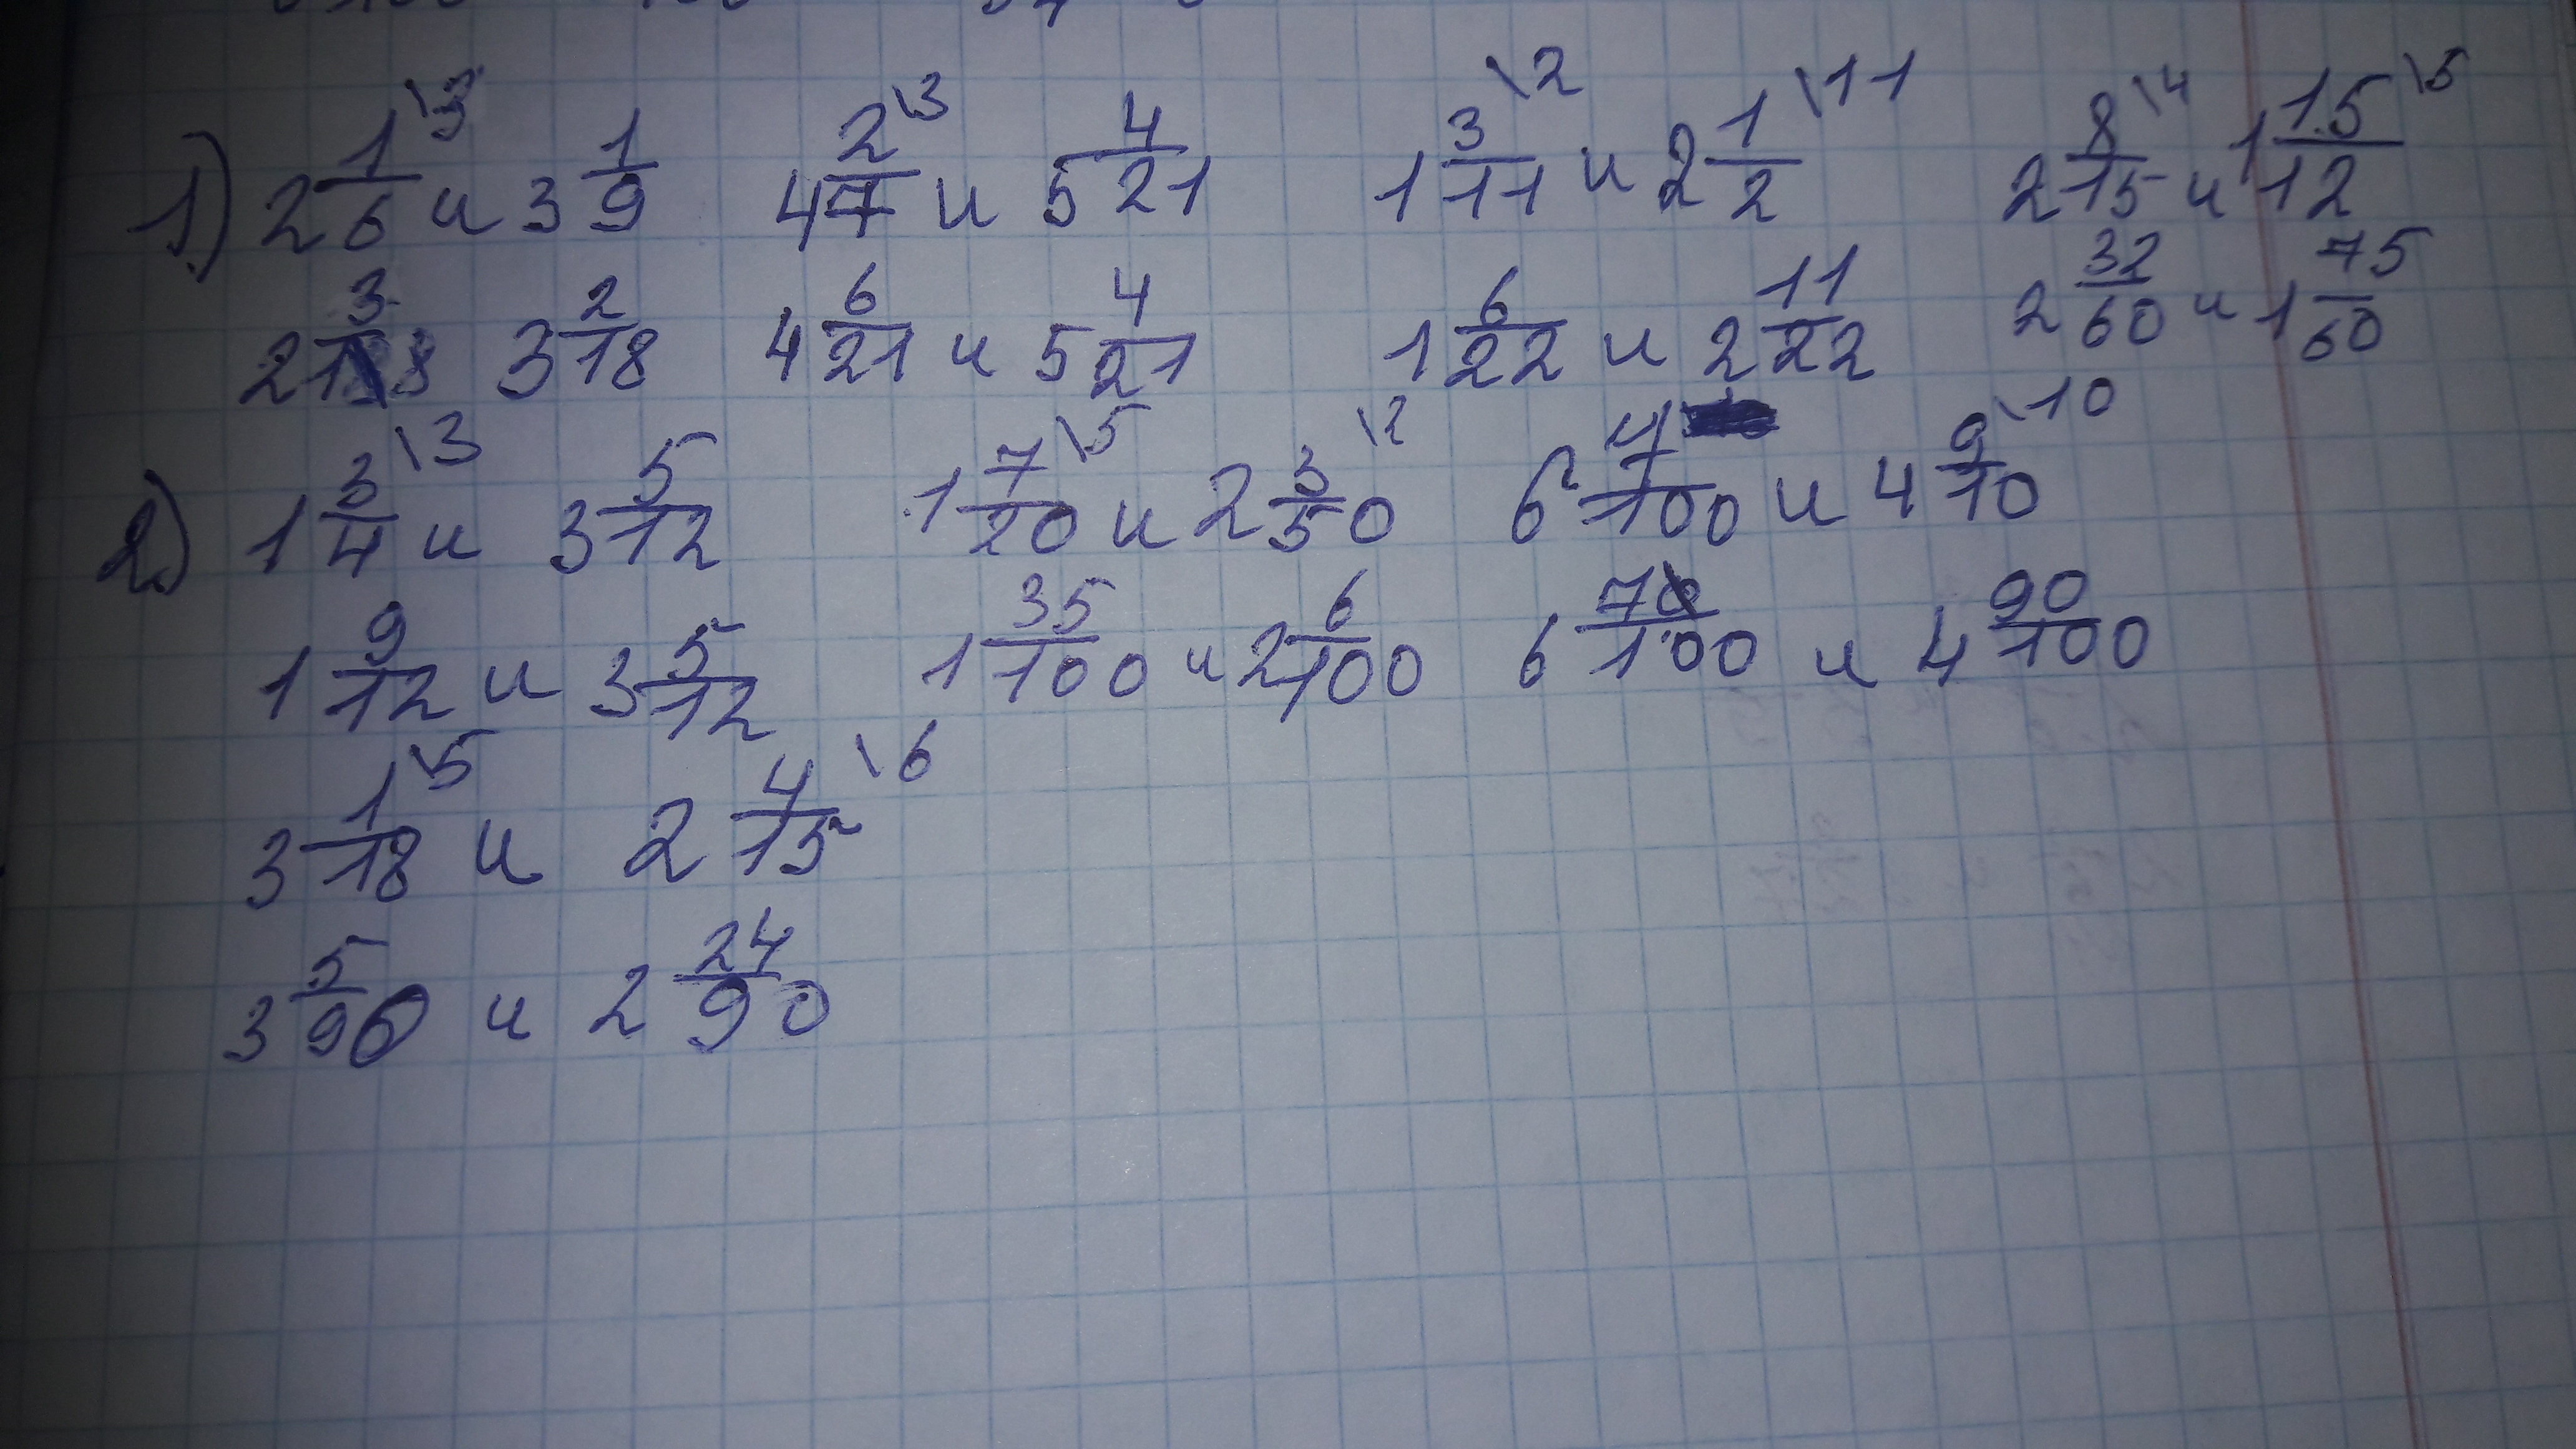 1) 2 1/6 \3 и 3 1/9 4 2/7 \3 и 5 4/21 1 3/11 \2 и 2 1/2 \11 2 8/15 \4 и 1 15/12 \5
2 3/18 3 2/18 4 6/21 и 5 4/21 1 6/22 и 2 11/22 2 32/60 и 1 75/60
2) 1 3/4 \3 и 3 5/12 1 7/20 \5 и 2 3/50 \2 6 /100 и 4 9/10 \10
1 9/12 и 3 5/12 1 35/100 и 2 6/100 6 7/100 и 4 90/100
3 1/18 \5 и 2 4/15 \6
3 5/90 и 2 24/90